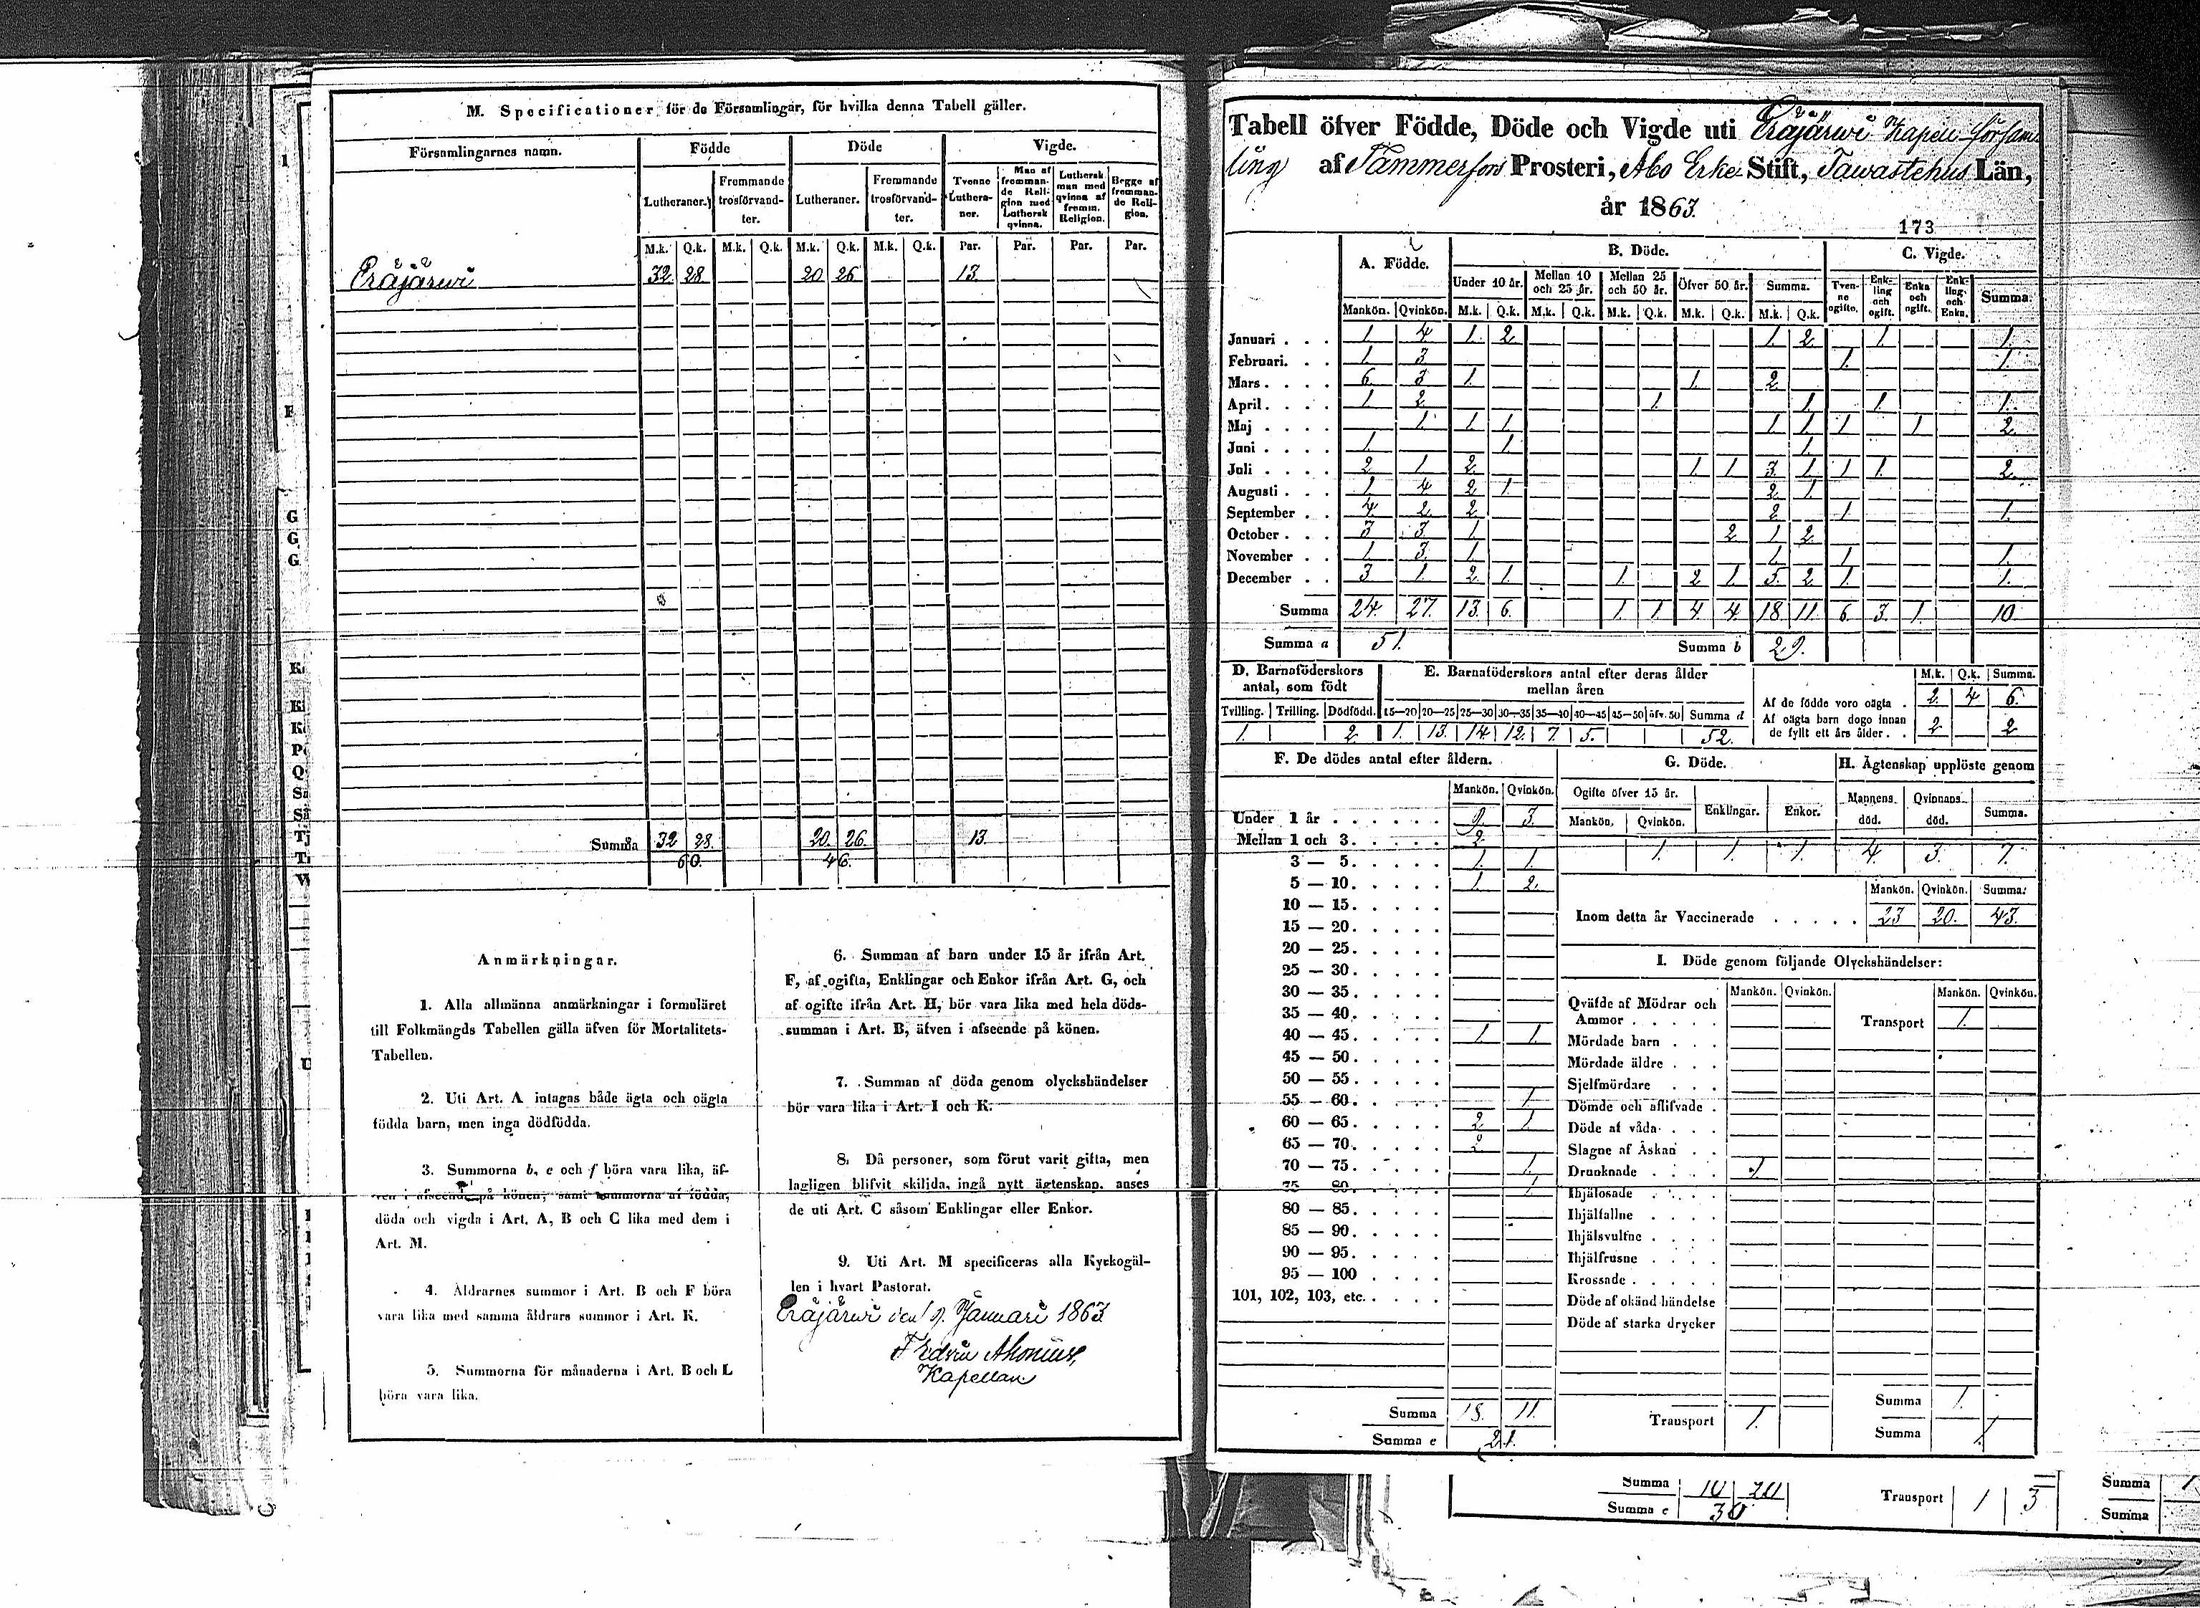 M. Specificationer för de Församlingar, för hvilka denna Tabell gäller.
Församlingarnes namn. Födde Döde Vigde.
Lutheraner. Frommande trosförvandter. Lutheraner. Fremmande trosförvandter. Tvenne Lutheraner. Man af fremmande Religion med Luthersk qvinna. Luthersk man med qvinna af fremm. Religion. Begge af fremmande Religion.
M.k. Q.k. M.k. Q.k. M.k. Q.k. M.k. Q.k. Par. Par. Par. Par.
Eräjärwi 32 28 20 26 13
Summa 32 28. 20. 26. 13
60. 46.
Anmärkningar.
1. Alla allmänna anmärkningar i formuläret
till Folkmängds Tabellen gälla äfven för Mortalitets-
Tabellen.
2. Uti Art. A intagas både ägta och oägta
födda barn, men inga dödfödda.
3. Summorna b, e och f böra vara lika, äf-
ven i afseende på könen; samt summorna af födda,
döda och vigda i Art. A, B och C lika med dem i
Art. M.
4. Åldrarnes summor i Art. B och F böra
vara lika med samma åldrars summor i Art. K.
5. Summorna för månaderna i Art. B och L
böra vara lika.
6. Summan af barn under 15 år ifrån Art.
F, af ogifta, Enklingar och Enkor ifrån Art. G, och
af ogifte ifrån Art. H, bör vara lika med hela döds-
summan i Art. B, äfven i afseende på könen.
7. Summan af döda genom olyckshändelser
bör vara lika i Art. I och K.
8. Då personer, som förut varit gifta, men
lagligen blifvit skiljda, ingå nytt ägtenskap, anses
de uti Art. C såsom Enklingar eller Enkor.
9. Uti Art. M specificeras alla Kyrkogäl-
len i hvart Pastorat.
Eräjärwi den 9. Januari 1863
Kapellan
Tabell öfver Födde, Döde och Vigde uti Eräjärwi Kapell försam
ling af Tammerfors Prosteri, Åbo Erke Stift, Tawastehus Län,
år 1863.
173
A. Födde. B. Döde. C. Vigde.
Under 10 år. Mellan 10 och 25 år. Mellan 25 och 50 år. Öfver 50 år. Summa. Tvenne ogifte. Enkling och ogift. Enka och ogift. Enkling och Enka. Summa.
Mankön. Qvinkön. M.k. Q.k. M.k. Q.k. M.k. Q.k. M.k. Q.k. M.k. Q.k.
Januari 1 4 1. 2 1 2 1 1.
Februari. 1 3 1. 1.
Mars 6 3 1. 1. 2
April 1 2 1. 1 1. 1.
Maj 1 1 1 1 1 1 1 2
Juni 1. 1 1.
Juli 2 1 2 1 1 3 1 1 1. 2
Augusti 1 4 2 1 2 1
September 4 2 2 2 1 1.
October 3 3 1. 2 1 2
November 1 3 1. 1 1 1.
December 3 1 2 1. 1 2 1 5 2 1. 1.
Summa 24. 27. 13. 6. 1. 1. 4. 4. 18. 11. 6. 3. 1. 10.
Summa a 51. Summa b 29.
D. Barnaföderskors antal, som födt
Tvilling. Trilling. Dödfödd.
1. 2
E. Barnaföderskors antal efter deras ålder mellan åren
15—20 20—25 25—30 30—35 35—40 40—45 45—50 öfv. 50 Summa d
1. 13. 14. 12. 7. 5. 52.
M.k. Q.k. Summa.
Af de födde voro oägta 2 4 6.
Af oägta barn dogo innan
de fyllt ett års ålder 2 2
F. De dödes antal efter åldern.
Mankön. Qvinkön.
Under 1 år 9. 3.
Mellan 1 och 3 2
3 — 5 1. 1.
5 — 10 1. 2.
10 — 15
15 — 20
20 — 25
25 — 30
30 — 35
35 — 40
40 — 45 1 1.
45 — 50
50 — 55
55 — 60 1.
60 — 65 2 1
65 — 70 2
70 — 75 1.
75 — 80 1
80 — 85
85 — 90
90 — 95
95 — 100
101, 102, 103, etc.
Summa 18. 11.
Summa e
G. Döde.
Ogifte öfver 15 år. Enklingar. Enkor.
Mankön. Qvinkön.
1. 1 1
H. Ägtenskap upplöste genom
Mannens död. Qvinnans död. Summa.
4. 3. 7.
Mankön. Qvinkön. Summa.
Inom detta år Vaccinerade 23 20. 43.
I. Döde genom följande Olyckshändelser:
Mankön. Qvinkön. Mankön. Qvinkön.
Qväfde af Mödrar och
Ammor Transport 1.
Mördade barn
Mördade äldre
Sjelfmördare
Dömde och aflifvade
Döde af våda
Slagne af Åskan
Drunknade 1
Ihjälosade
Ihjälfallne
Ihjälsvultne
Ihjälfrusne
Krossade
Döde af okänd händelse
Döde af starka drycker
Summa 1.
Transport 1.
Summa 1.
Summa 10 20 Transport 1 3 Summa
Summa e 30 Summa